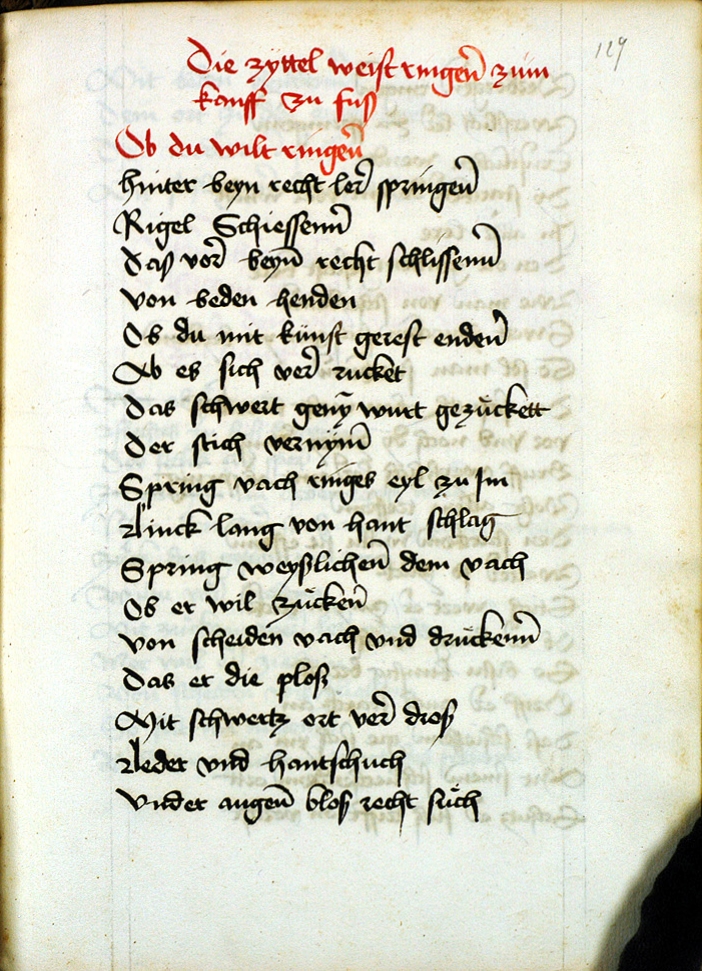 129
Die zyttel weist ringen̄ zum
kanff zu fuß
Ob du wilt ringen̄
hinter beyn recht ler̄ springen̄
Rigel Schiessenn̄
daß vor̄ beyn̄ recht schlissenn̄
von beden henden
Ob du mit kunst gerest enden̄
Ab es sich ver̄ rucket
das schwert geny̆ wurt gezückett
der stich vernÿm̄
Spring vach ringes eyl zu Im
Linck lang von hant schlag
Spring weyßlichen̄ dem vach
Ob er wil zücken̄
von scheiden vach vnd drückenn̄
Das er die ploß
Mit schwertz ort ver̄ droß
Leder vnd hantschuch
vnder augen̄ bloß recht süch